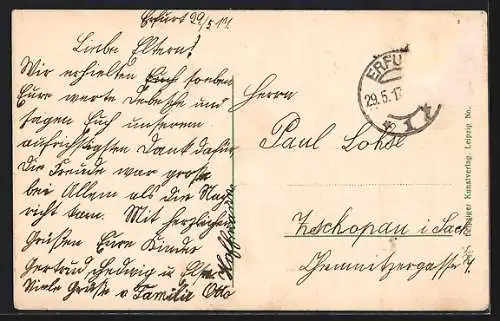 Erfurt 29/5 17.
Liebe Eltern!
Wir erhielten Euch soeben
Eure werte Depesche und
sagen Euch unseren
aufrichtigsten Dank dafür
Die Freude war gross
bei Allem als die Nach
richt kam. Mit herzlichen
Grüßen Eure Kinder
Gertrud, Hedwig u
Viele Grüße v Familie Otto
Hoffmann
ERFU
29.5.17
Herrn
Paul
Zschopau i. Sach
Chemnitzergasse 7.
Leipziger Kunstverlag, Leipzig No.